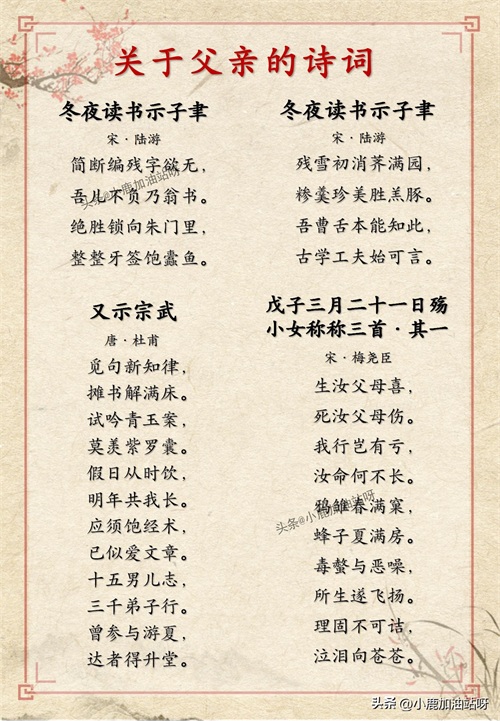 关于父亲的诗词
冬夜读书示子聿
宋·陆游
简断编残字欲无，
吾儿不负乃翁书。
绝胜锁向朱门里，
整整牙签饱蠹鱼。
冬夜读书示子聿
宋·陆游
残雪初消荠满园，
糁羹珍美胜羔豚。
吾曹舌本能知此，
古学工夫始可言。
又示宗武
唐·杜甫
觅句新知律，
摊书解满床。
试吟青玉案，
莫羡紫罗囊。
假日从时饮，
明年共我长。
应须饱经术，
已似爱文章。
十五男儿志，
三千弟子行。
曾参与游夏，
达者得升堂。
戊子三月二十一日殇
小女称称三首·其一
宋·梅尧臣
生汝父母喜，
死汝父母伤。
我行岂有亏，
汝命何不长。
鸦雏春满窠，
蜂子夏满房。
毒螫与恶噪，
所生遂飞扬。
理固不可诘，
泣泪向苍苍。
头条@小鹿加油站呀
头条@小鹿加油站呀
头条 @小鹿加油站呀